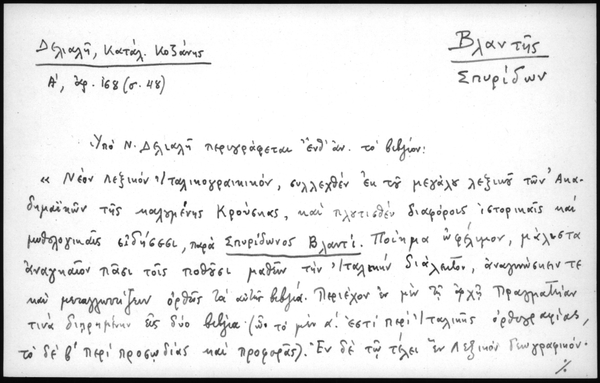 Δελιαλῆ, Κατάλ. Κοζάνης
Α', ἀρ. 168 (σ. 48)
Βλαντῆς
Σπυρίδων
Ὑπό Ν. Δελιαλῆ περιγράφεται ἔνθ' ἀν. τό βιβλίον:
« Νέον Λεξικόν Ἰταλικογραικικόν, συλλεχθέν ἐκ τοῦ μεγάλου λεξικοῦ τῶν Ἀκα-
δημαϊκῶν τῆς καλουμένης Κρούσκας, καί πλουτισθέν διαφόροις ἱστορικαῖς καί
μυθολογικαῖς εἰδήσεσι, παρά Σπυρίδωνος Βλαντῆ. Ποίημα ὠφέλιμον, μάλιστα
ἀναγκαῖον πᾶσι τοῖς ποθοῦσι μαθεῖν τήν Ἰταλικήν διάλεκτον, ἀναγινώσκειν τε
καί μεταγλωττίζειν ὀρθῶς τά αὐτῆς βιβλία. Περιέχον ἐν μέν τῇ ἀρχῇ Πραγματείαν
τινά διῃρημένην εἰς δύο βιβλία (ὧν τό μέν α'. ἐστί περί Ἰταλικῆς ὀρθογραφίας,
τό δέ β' περί προσῳδίας καί προφορᾶς). Ἐν δέ τῷ τέλει ἕν Λεξικόν Γεωγραφικόν.
./.